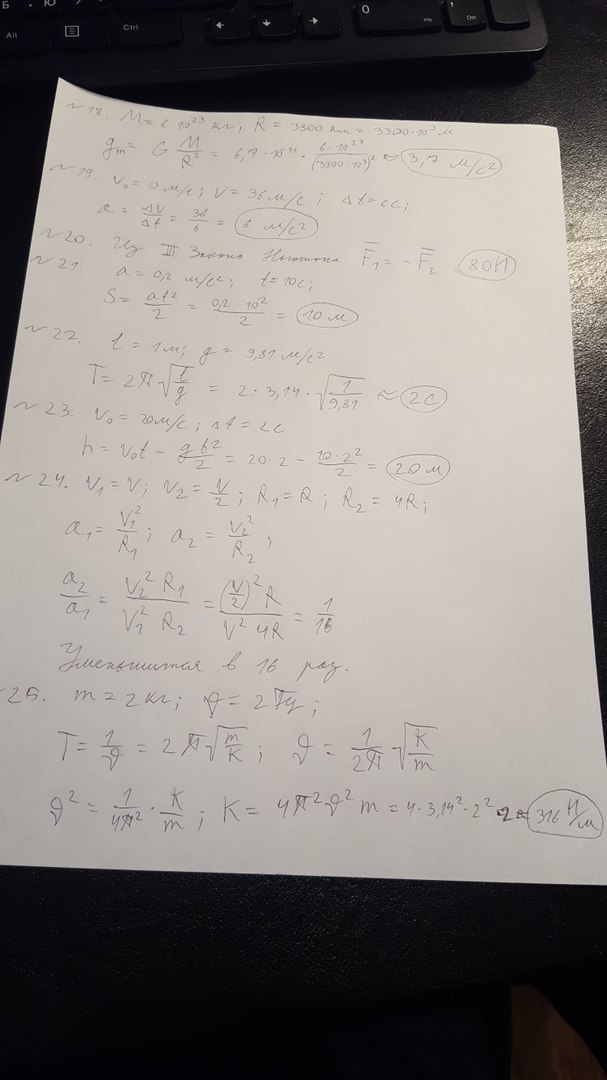 Б Ю
Alt
Ctrl
0
Ins
Del
~18. M = 6·10²³ кг; R = 3300 км = 3300·10³ м
gm = G M/R² = 6,7·10¹¹ · 6·10²³/(3300·10³)² ≈ 3,7 м/с²
~19. V₀ = 0 м/с; V = 36 м/с; Δt = 6с;
a = ΔV/Δt = 36/6 = 6 м/с²
~20. Из III Закона Ньютона F̅₁ = -F̅₂ 80Н
~21. a = 0,2 м/с²; t = 10с;
S = at²/2 = 0,2·10²/2 = 10 м
~22. l = 1м; g = 9,81 м/с²
T = 2π√(l/g) = 2·3,14·√(1/9,81) ≈ 2с
~23. V₀ = 20м/с; Δt = 2с
h = V₀t - gt²/2 = 20·2 - 10·2²/2 = 20м
~24. V₁ = V; V₂ = V/2; R₁ = R; R₂ = 4R;
a₁ = V₁²/R₁; a₂ = V₂²/R₂;
a₂/a₁ = V₂² R₁/V₁² R₂ = (V/2)² R/V² 4R = 1/16
Уменьшится в 16 раз.
25. m = 2кг; ϑ = 2Гц;
T = 1/ϑ = 2π√(m/K); ϑ = 1/2π √(K/m)
ϑ² = 1/4π² · K/m; K = 4π²ϑ²m = 4·3,14²·2²·2 ≈ 316 Н/м